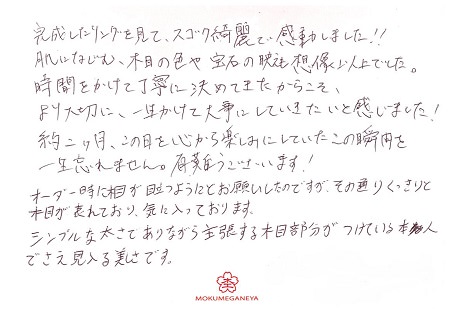 完成したリングを見て、スゴク綺麗で感動しました!!
肌になじむ、木目の色や宝石の映え想像以上でした。
時間をかけて丁寧に決めてきたからこそ、
より大切に、一生かけて大事にしていきたいと感じました!
約二ヶ月、この日を心から楽しみにしていたこの瞬間を
一生忘れません。有難うございます!
オーダー時に木目が目立つようにとお願いしたのですが、その通りくっきりと
木目が表れており、気に入っております。
シンプルな太さでありながら主張する木目部分がつけている本人
でさえ見入る美しさです。
MOKUMEGANEYA